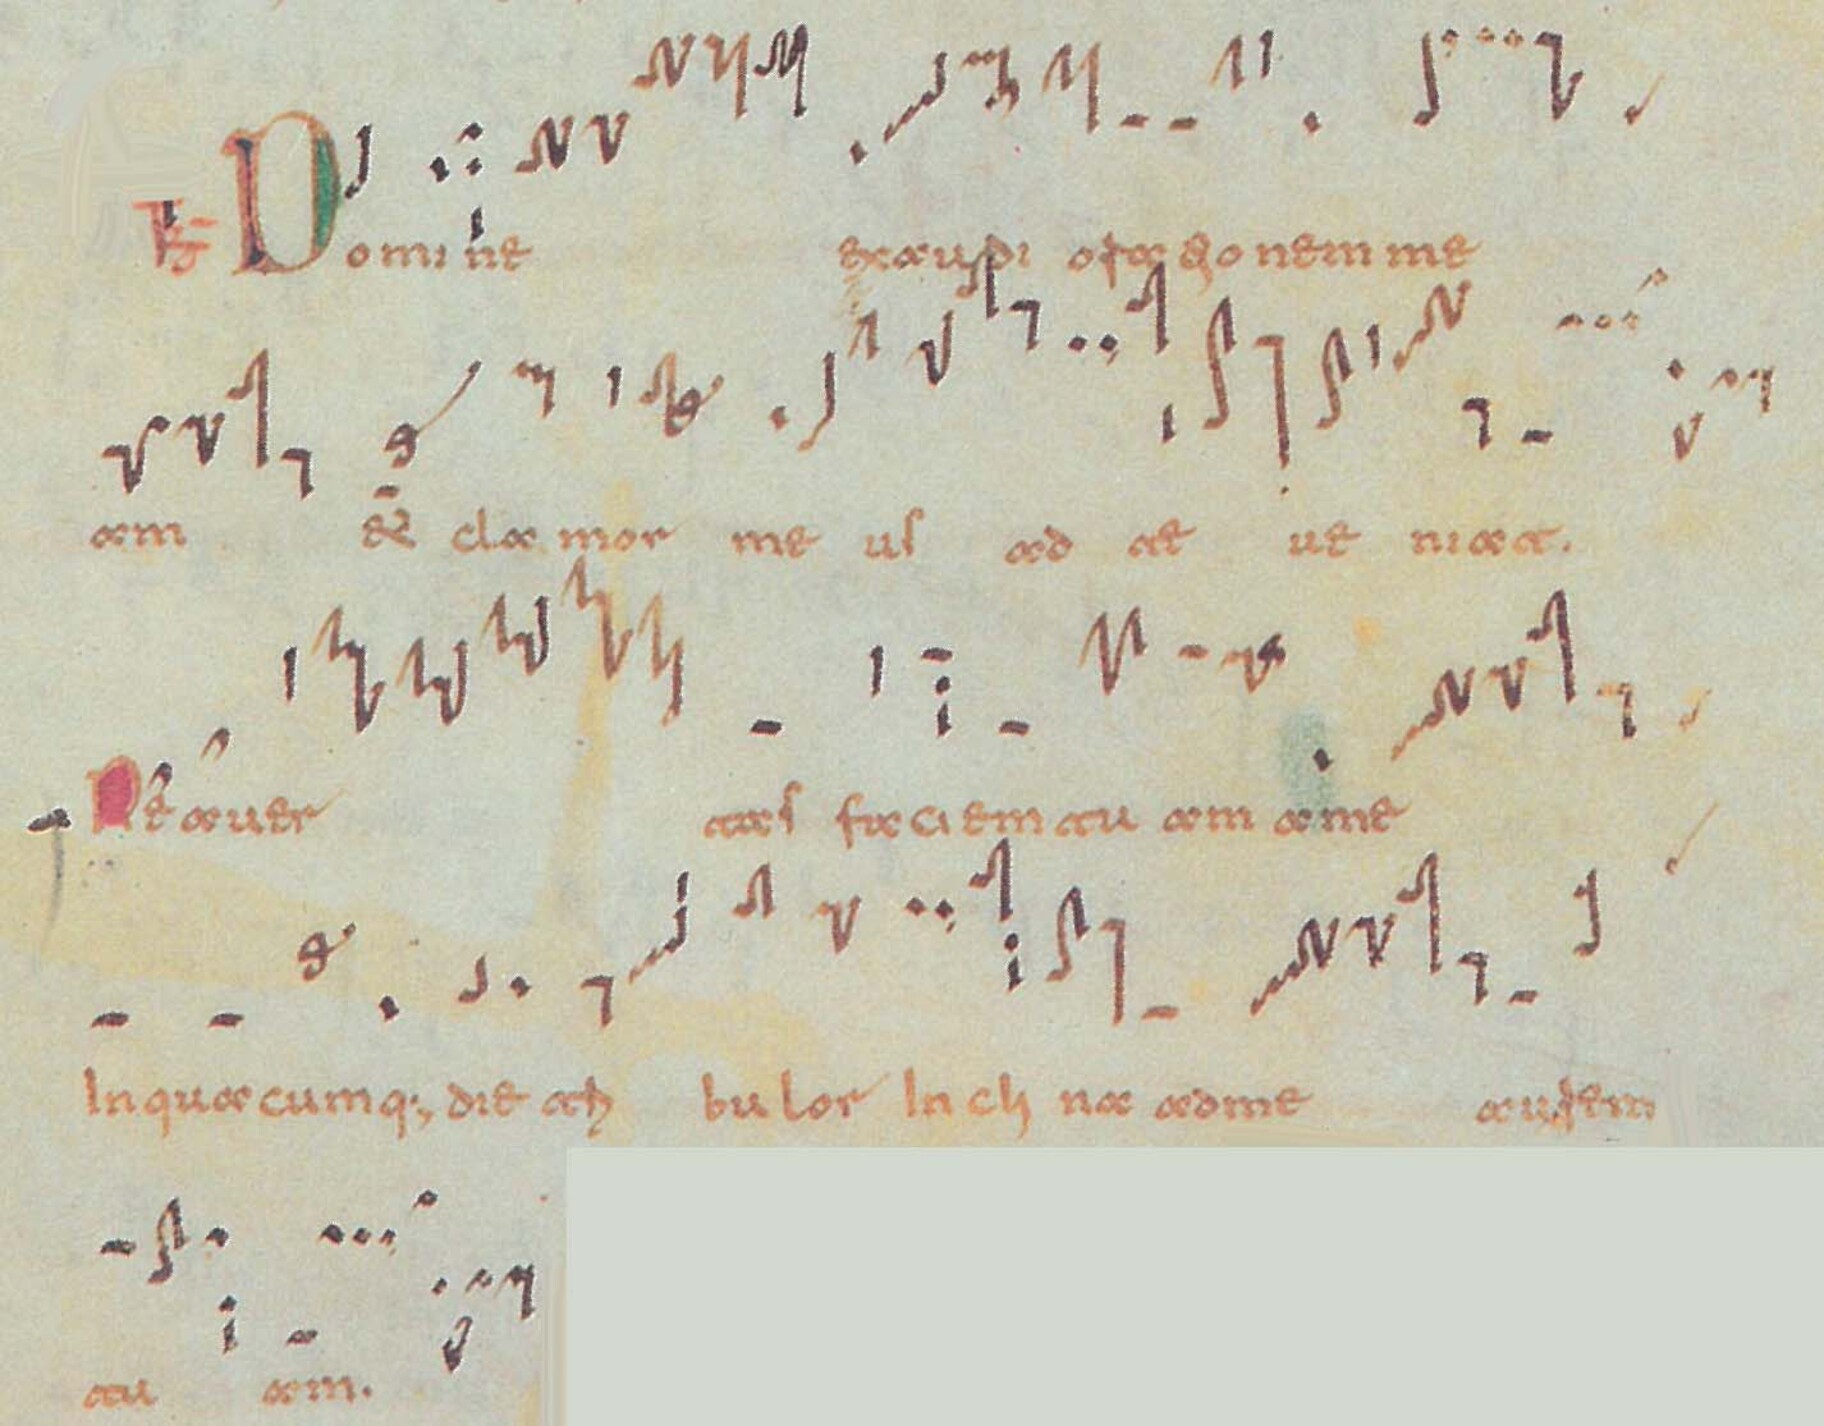 R Domine exaudi orationem me
am et clamor me us ad te ve niat.
Ne aver tas faciem tu am a me
In quacumq; die tri bulor Incli na ad me aurem
tu am.